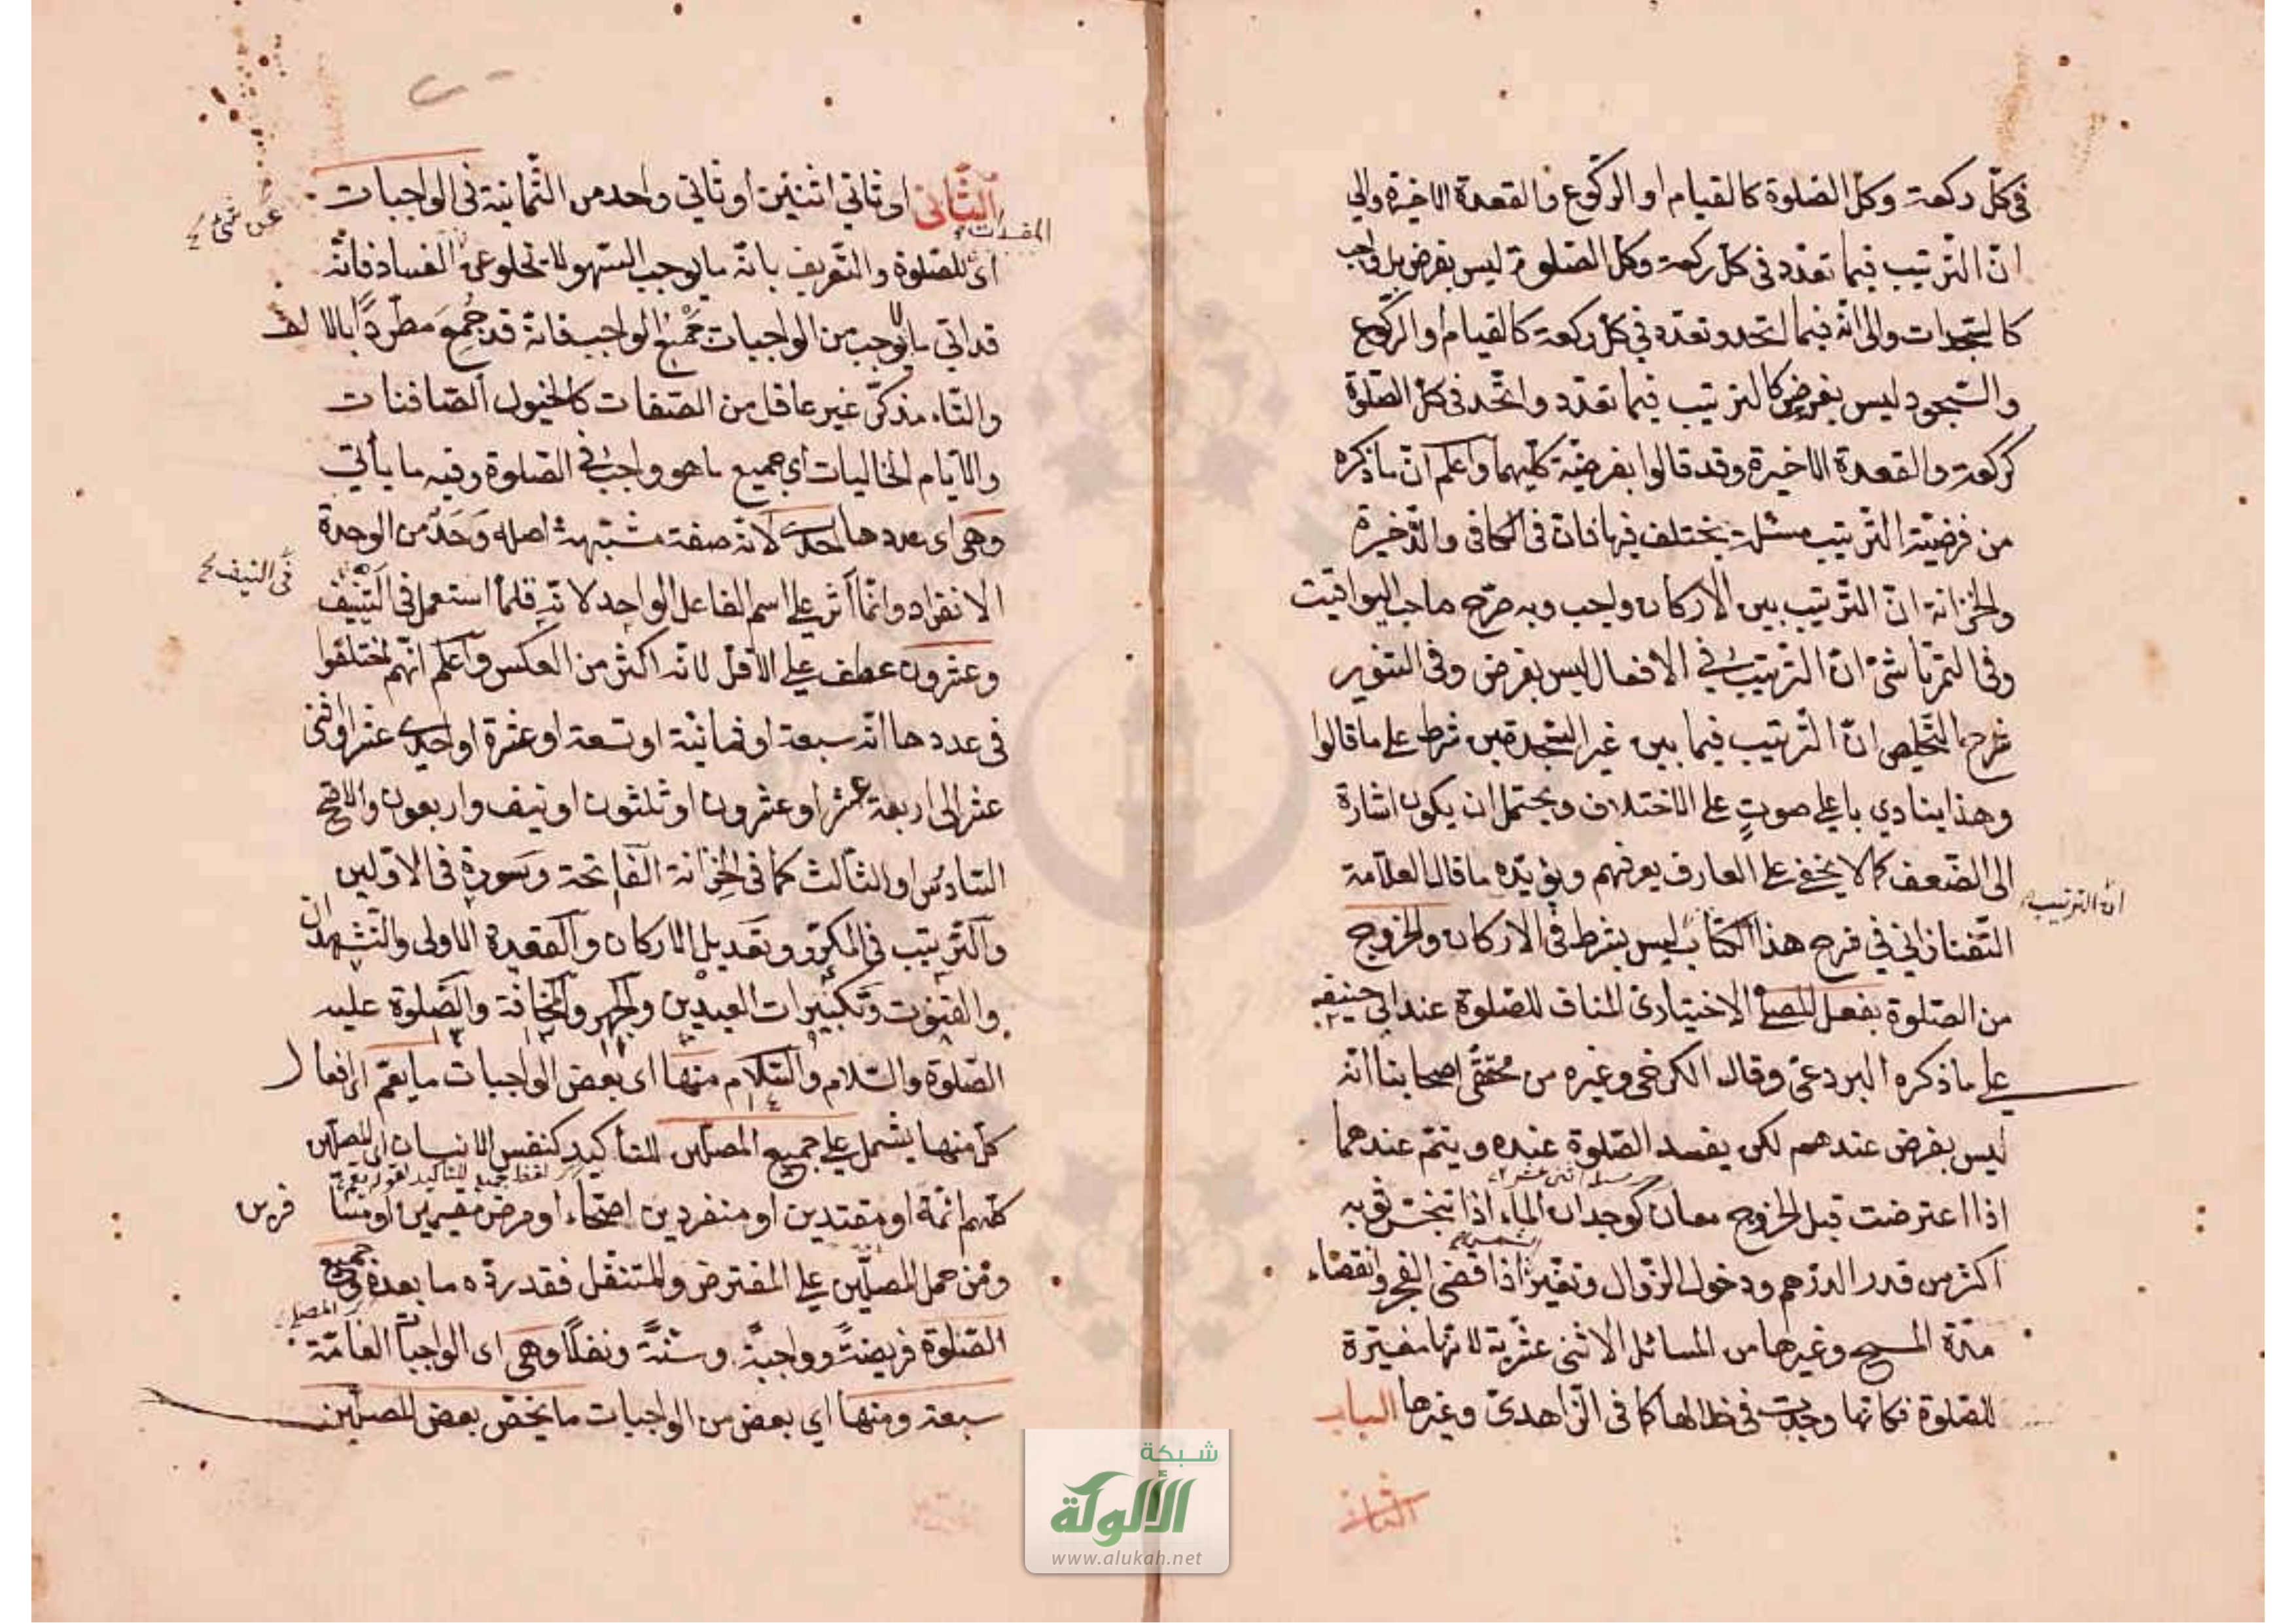 في كلّ ركعة وكلّ الصّلوة كالقيام او الركوع والقعدة الاخيرة والى
انّ التّرتيب فيما تعدّد في كلّ ركعة وكلّ الصّلوة ليس بفرض بل واجب
كالسّجدات والى انّه فيما اتّحد وتعدّد في كلّ ركعة كالقيام والركوع
والسّجود ليس بفرض كالترتيب فيما تعدّد واتّحد في كلّ الصّلوة
كركعة والقعدة الاخيرة وقد قالوا بفرضيّة كليهما واعلم انّ ما ذكره
من فرضيّة التّرتيب مسئلة يختلف فيها فانّ في الكافي والذّخيرة
والخزانة انّ التّرتيب بين الاركان واجب وبه صرّح صاحب اليواقيت
وفي التمرتاشيّ انّ الترتيب في الافعال ليس بفرض وفي التنوير
شرح التّلخيص انّ التّرتيب فيما بين غير السّجدتين شرط على ما قالوا
وهذا ينادي باعلى صوتٍ على الاختلاف ويحتمل ان يكون اشارة
الى الضّعف كما لا يخفى على العارف بعرفهم ويؤيّده ما قال العلّامة
انّ الترتيب
التّفتازاني في شرح هذا الكتاب ليس بشرط في الاركان والخروج
من الصّلوة بفعل المصلّي الاختياريّ المناف للصّلوة عند ابي حنيفة
على ما ذكره البردعيّ وقال الكرخي وغيره من محقّقي اصحابنا انّه
ليس بفرض عندهم لكن يفسد الصّلوة عنده ويتمّ عندهما
اذا اعترضت قبل الخروج معان كوجدان الماء اذا تنجّس ثوبه
اكثر من قدر الدّرهم ودخول الزّوال وتغيّر اذا قضى الفجر وانقضاء
مدّة المسح وغيرها من المسائل الاثنى عشريّة لانّها مغيّرة
للصّلوة فكانّها وجدت في خلالها كما في الزّاهديّ وغيرها الباب
الثانى
الثّانى اى ثاني اثنين او ثاني واحد من الثّمانية في الواجبات
اى للصّلوة والتّعريف بانّه ما يوجب السّهو لا يخلو عن الفساد فانّه
عن شئ
قد اتي بالوجب من الواجبات جمع الواجب فانّه قد جُمِعَ مطّردًا بالالف
والتّاء مذكّر غير عاقل من الصّفات كالخيول الصّافنات
والايّام الخاليات اي جميع ما هو واجب في الصّلوة وفيه ما يأتي
وهى اى عددها احدى لانّه صفة مشبّهة اصله وَحَدٌ من الوحدة
الانفراد وانّما آثر على اسم الفاعل الواحد لانّه قلّما استعمل في التنيّف
في النيف
وعشرون عطف على الاقلّ لانّه اكثر من العكس واعلم انّهم اختلفوا
في عددها انّه سبعة او ثمانيّة او تسعة او عشرة او احدى عشر او اثنى
عشر الى اربعة عشر او عشرون او ثلثون او نيف واربعون والاصحّ
السّادس او الثّالث كما في الخزانة الفاتحة وسورة في الاوّلين
والتّرتيب في المكرّر وتعديل الاركان والقعدة الاولى والتّشهدان
والقنوت وتكبيرات العيدين والجهر والمخافتة والصّلوة عليه
الصّلوة والسّلام والسّلام منها اى بعض الواجبات ما يعمّ
كلّ منها يشمل على جميع المصلّين للتأكيد كنفس الانسان اى المصلّين
كلّهم ائمّة او مقتدين او منفردين اصحّاء او مرضى مقيمين او
ومن حمل المصلّين على المفترض والمتنفّل فقد ردّه ما بعده في جميع
الصّلوة فريضةً وواجبةً وسنّةً ونفلًا وهى اى الواجبات العامّة
سبعة ومنها اي بعض من الواجبات ما يخصّ بعض المصلّين
شبكة
الألوكة
www.alukah.net